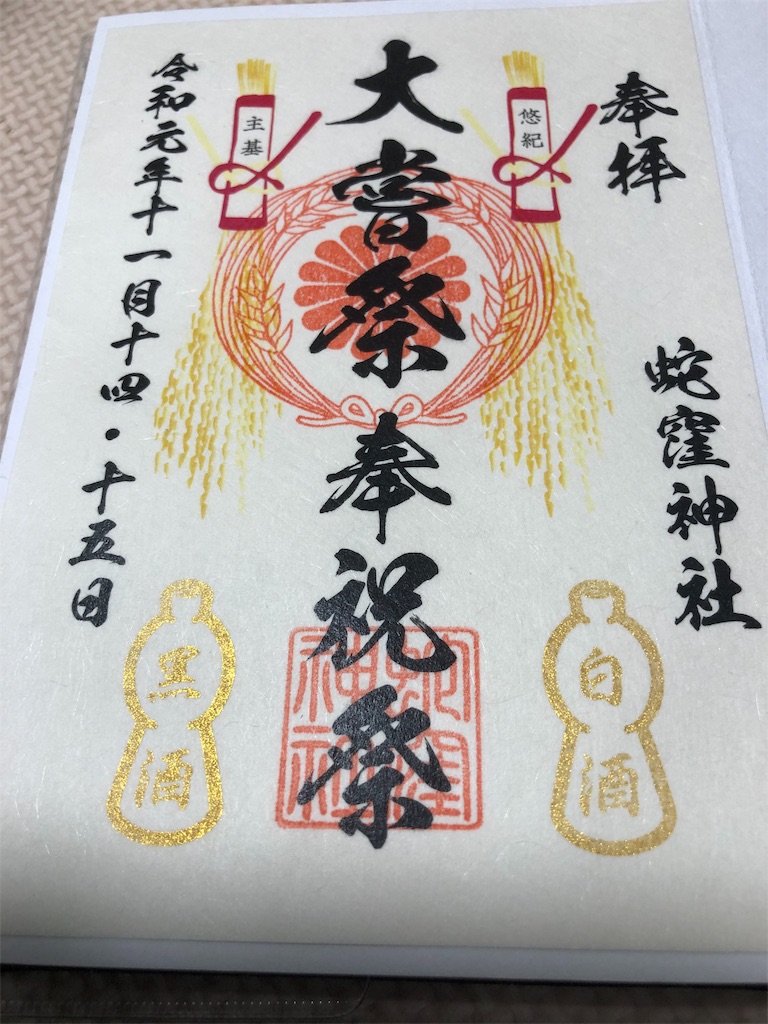 奉拝
蛇窪神社
悠紀
大嘗祭奉祝祭
主基
令和元年十一月十四・十五日
白酒
黒酒
蛇窪
神社